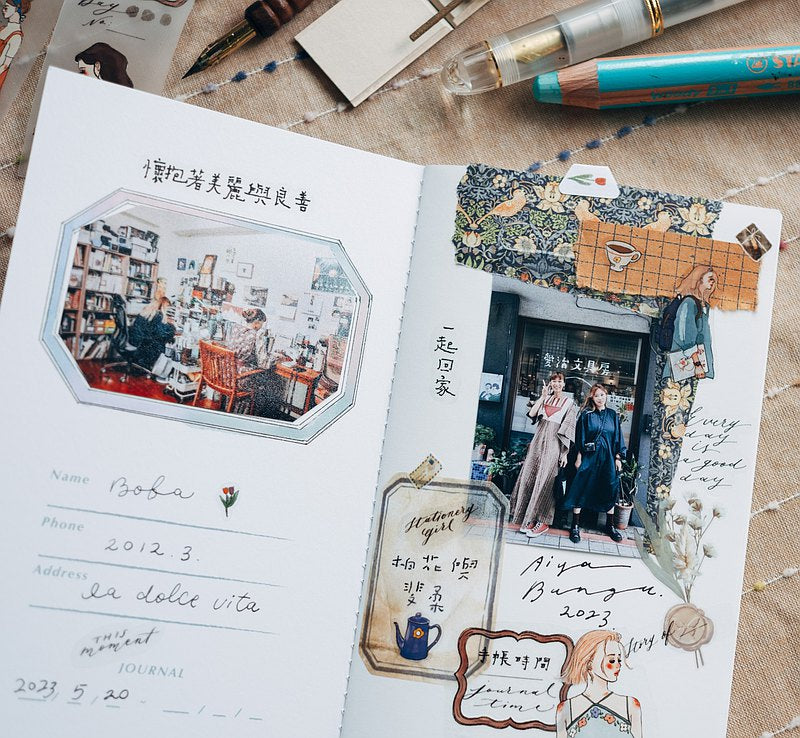 Day
No.
懷抱著美麗與良善
Name Boba
Phone 2012.3.
Address la dolce vita
THIS
moment
JOURNAL
2023, 5, 20
一起回家
文具房
Every
day
is
a good
day
Stationery
girl
Aiya
Bungu.
2023.
Story of
手帳時間
Journal
time